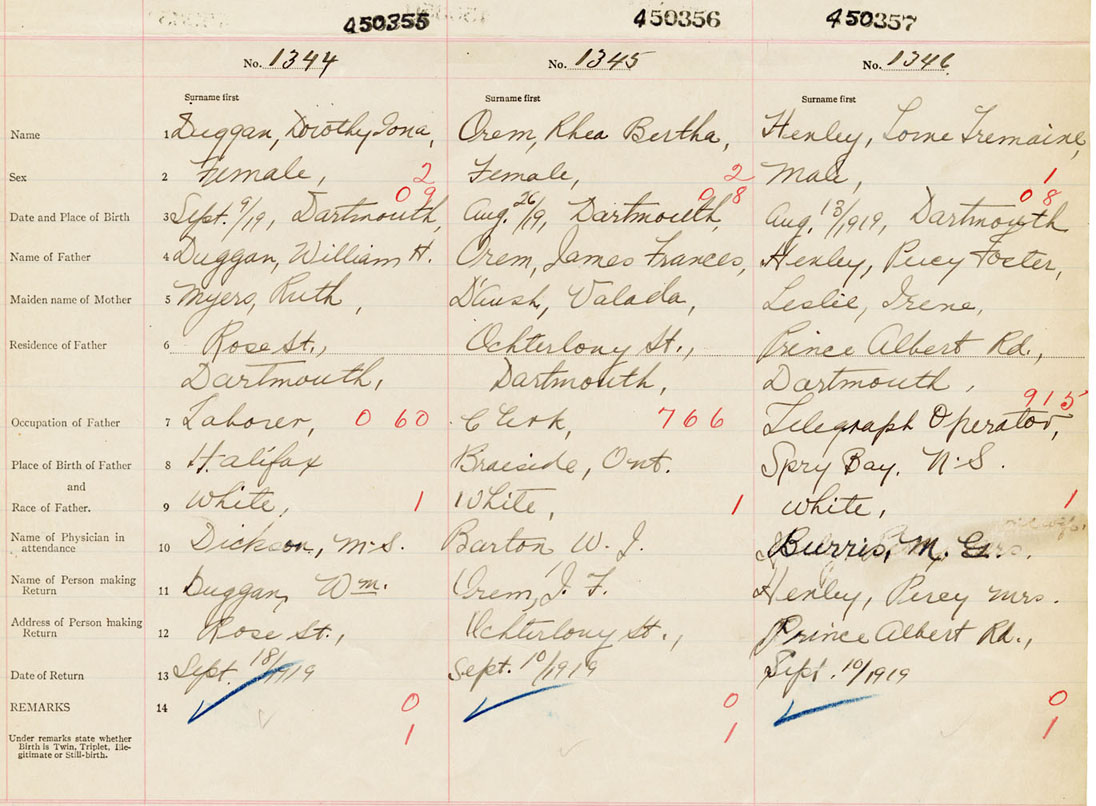 450355 450356 450357
No. 1344 No. 1345 No. 1346
Surname first Surname first Surname first
Name 1 Duggan, Dorothy Iona, Orem, Rhea Bertha, Henley, Lorne Tremaine,
Sex 2 Female, 2 Female, 2 Male, 1
09 08 08
Date and Place of Birth 3 Sept. 9/19, Dartmouth, Aug. 26/19, Dartmouth, Aug. 13/1919, Dartmouth
Name of Father 4 Duggan, William H. Orem, James Frances, Henley, Percy Foster,
Maiden name of Mother 5 Myers, Ruth, Valada, Leslie, Irene,
Residence of Father 6 Rose St., Ochterlony St., Prince Albert Rd.,
Dartmouth, Dartmouth, Dartmouth,
915
Occupation of Father 7 Laborer, 060 Clerk, 766 Telegraph Operator,
Place of Birth of Father 8 Halifax Braiside, Ont. Spry Bay. N.S.
and
Race of Father. 9 White, 1 White, 1 White, 1
Name of Physician in
attendance 10 Dickson, M.S. Barton, W. J. Burris, M. G.
Name of Person making
Return 11 Duggan, Wm. Orem, J. F. Henley, Percy Mrs.
Address of Person making
Return 12 Rose St., Ochterlony St., Prince Albert Rd.,
Date of Return 13 Sept. 18/1919 Sept. 10/1919 Sept. 10/1919
REMARKS 14 0 0 0
1 1 1
Under remarks state whether
Birth is Twin, Triplet, Ille-
gitimate or Still-birth.